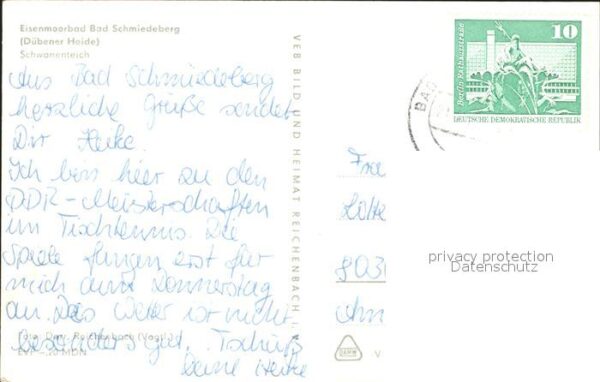 Eisenmoorbad Bad Schmiedeberg
(Dübener Heide)
Schwanenteich
Aus Bad Schmiedeberg
herzliche Grüße sendet
Dir Heike.
Ich bin hier zu den
DDR-Meisterschaften
im Tischtennis. Die
Spiele fangen erst für
mich am Donnerstag
an. Das Wetter ist nicht
besonders gut. Tschüß
Deine Heike
Foto: Darr, Reichenbach (Vogtl.)
EVP -,20 MDN
VEB BILD UND HEIMAT REICHENBACH I. V.
10
Berlin, Rathausstraße
DEUTSCHE DEMOKRATISCHE REPUBLIK
BA
8030
privacy protection
Datenschutz
V